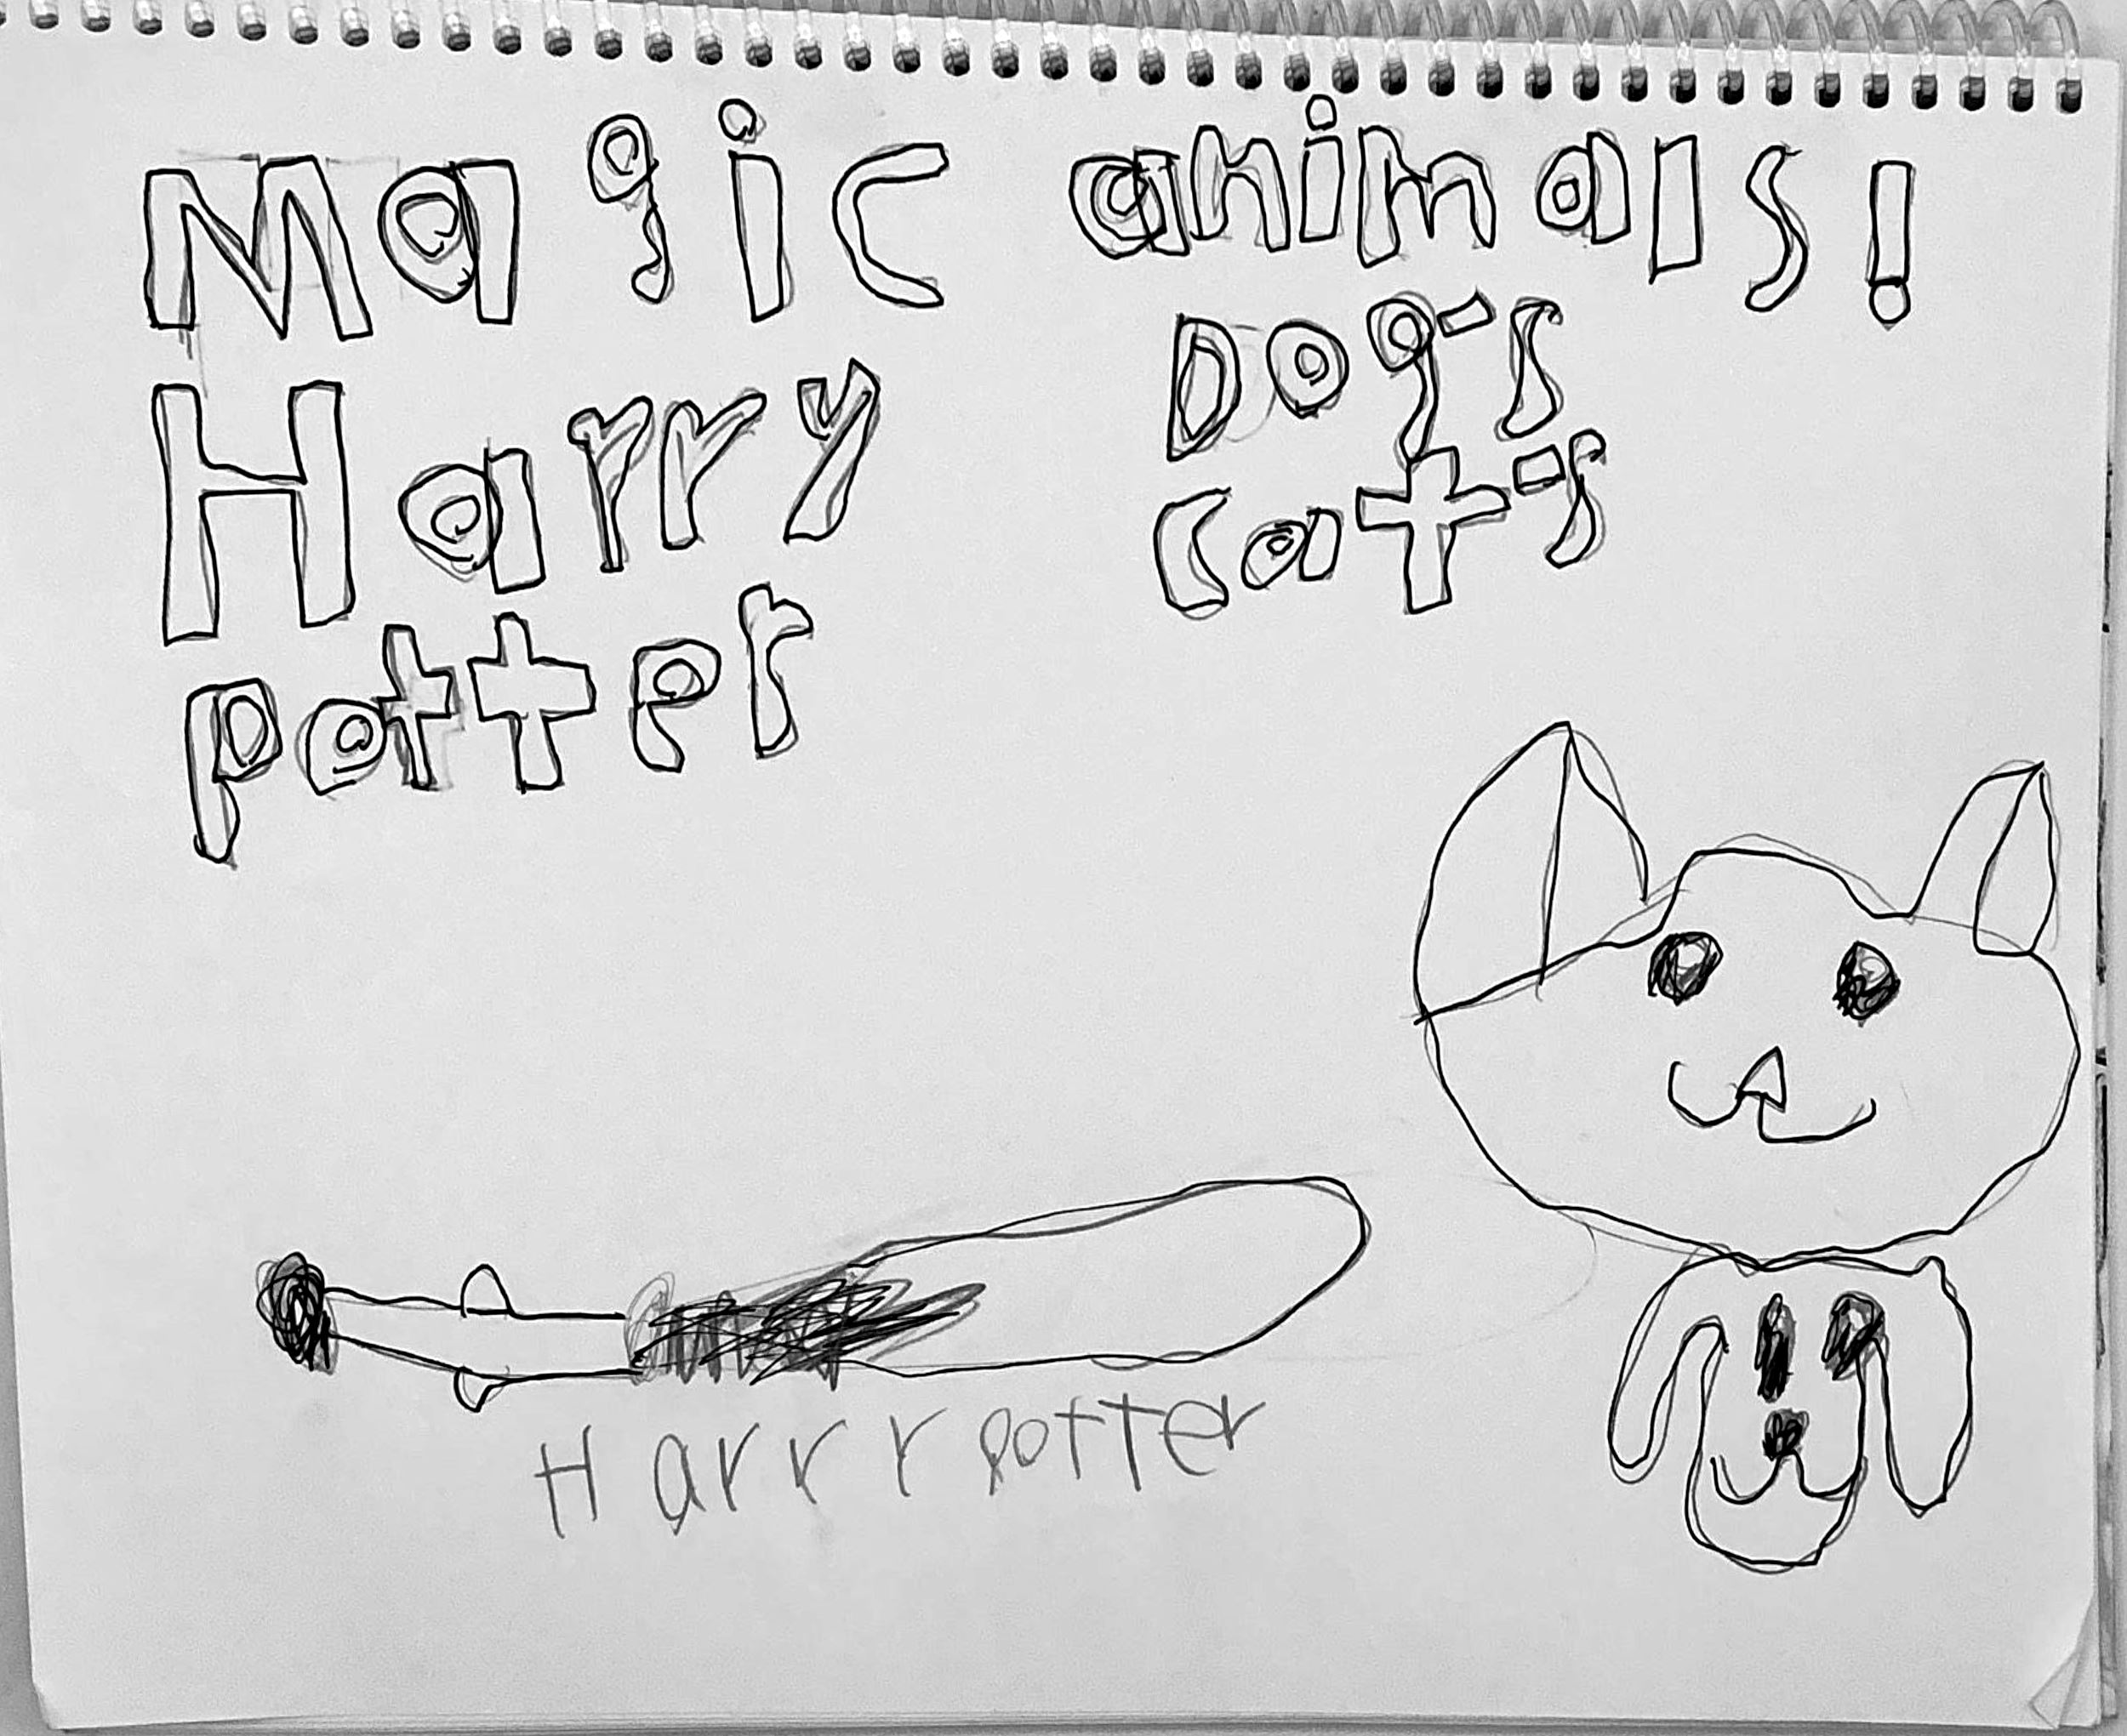 Magic animals!
Dog-s
Cat-s
Harry
potter
Harrr potter